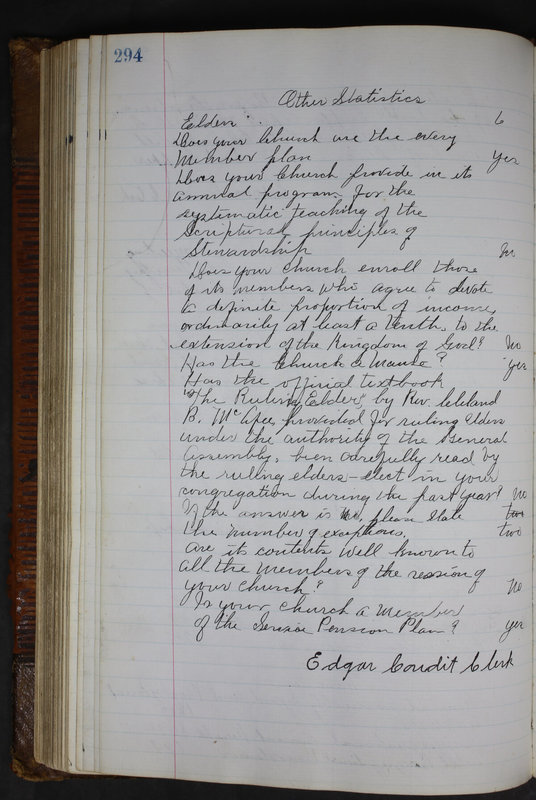 294
Other Statistics
Elders . . 6
Does your Church use the every
Member plan yes
Does your Church provide in its
annual program for the
systematic teaching of the
Scriptural principles of
Stewardship no
Does your Church enroll those
of its members who agree to devote
a definite proportion of income,
ordinarily at least a tenth, to the
extension of the Kingdom of God? No
Has the Church a Manse? yes
Has the official textbook
"The Ruling Elder", by Rev. Cleland
B. McAfee, provided for ruling elders
under the authority of the General
Assembly, been carefully read by
the ruling elders-elect in your
congregation during the past year? no
If the answer is no, please state two
the number of exceptions. two
Are its contents well known to
all the members of the session of
your Church? No
Is your church a member
of the Service Pension Plan? yes
Edgar Condit Clerk